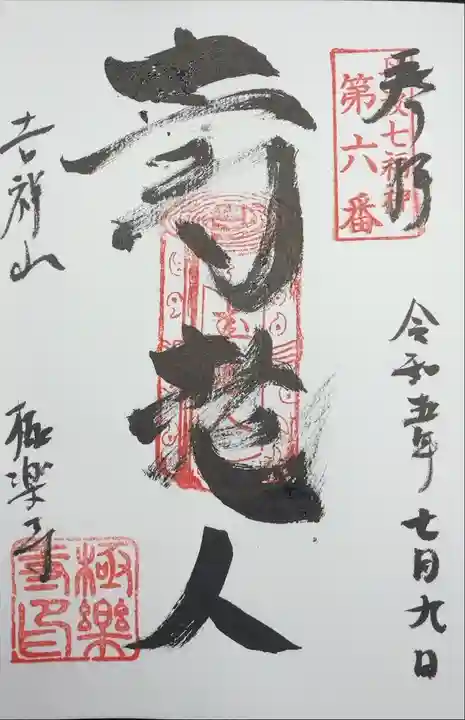 奉拝
第六番
令和五年七月九日
寿老人
吉祥山
極楽寺
極樂寺印